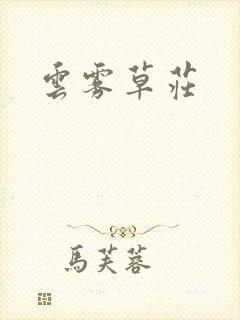 雲霧草莊
馬芙蓉